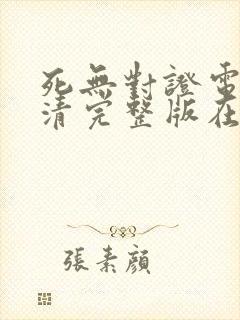 死無對證電
清完整版在
張素顏